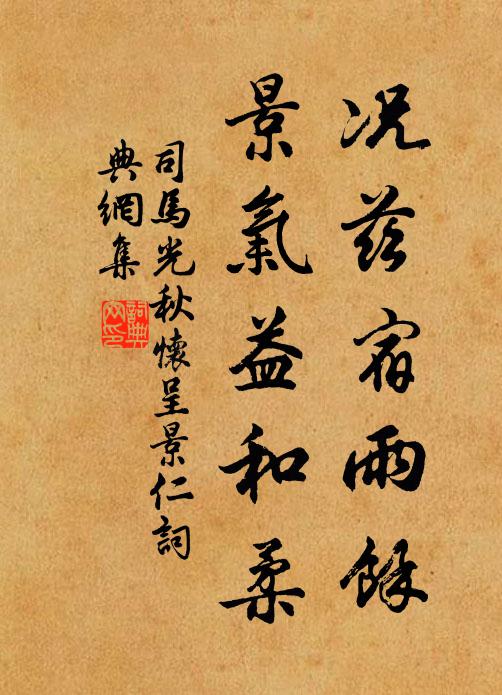 况茲宿雨餘
景氣益和柔
司馬光秋懷呈景仁詞
典網集
詞典網印